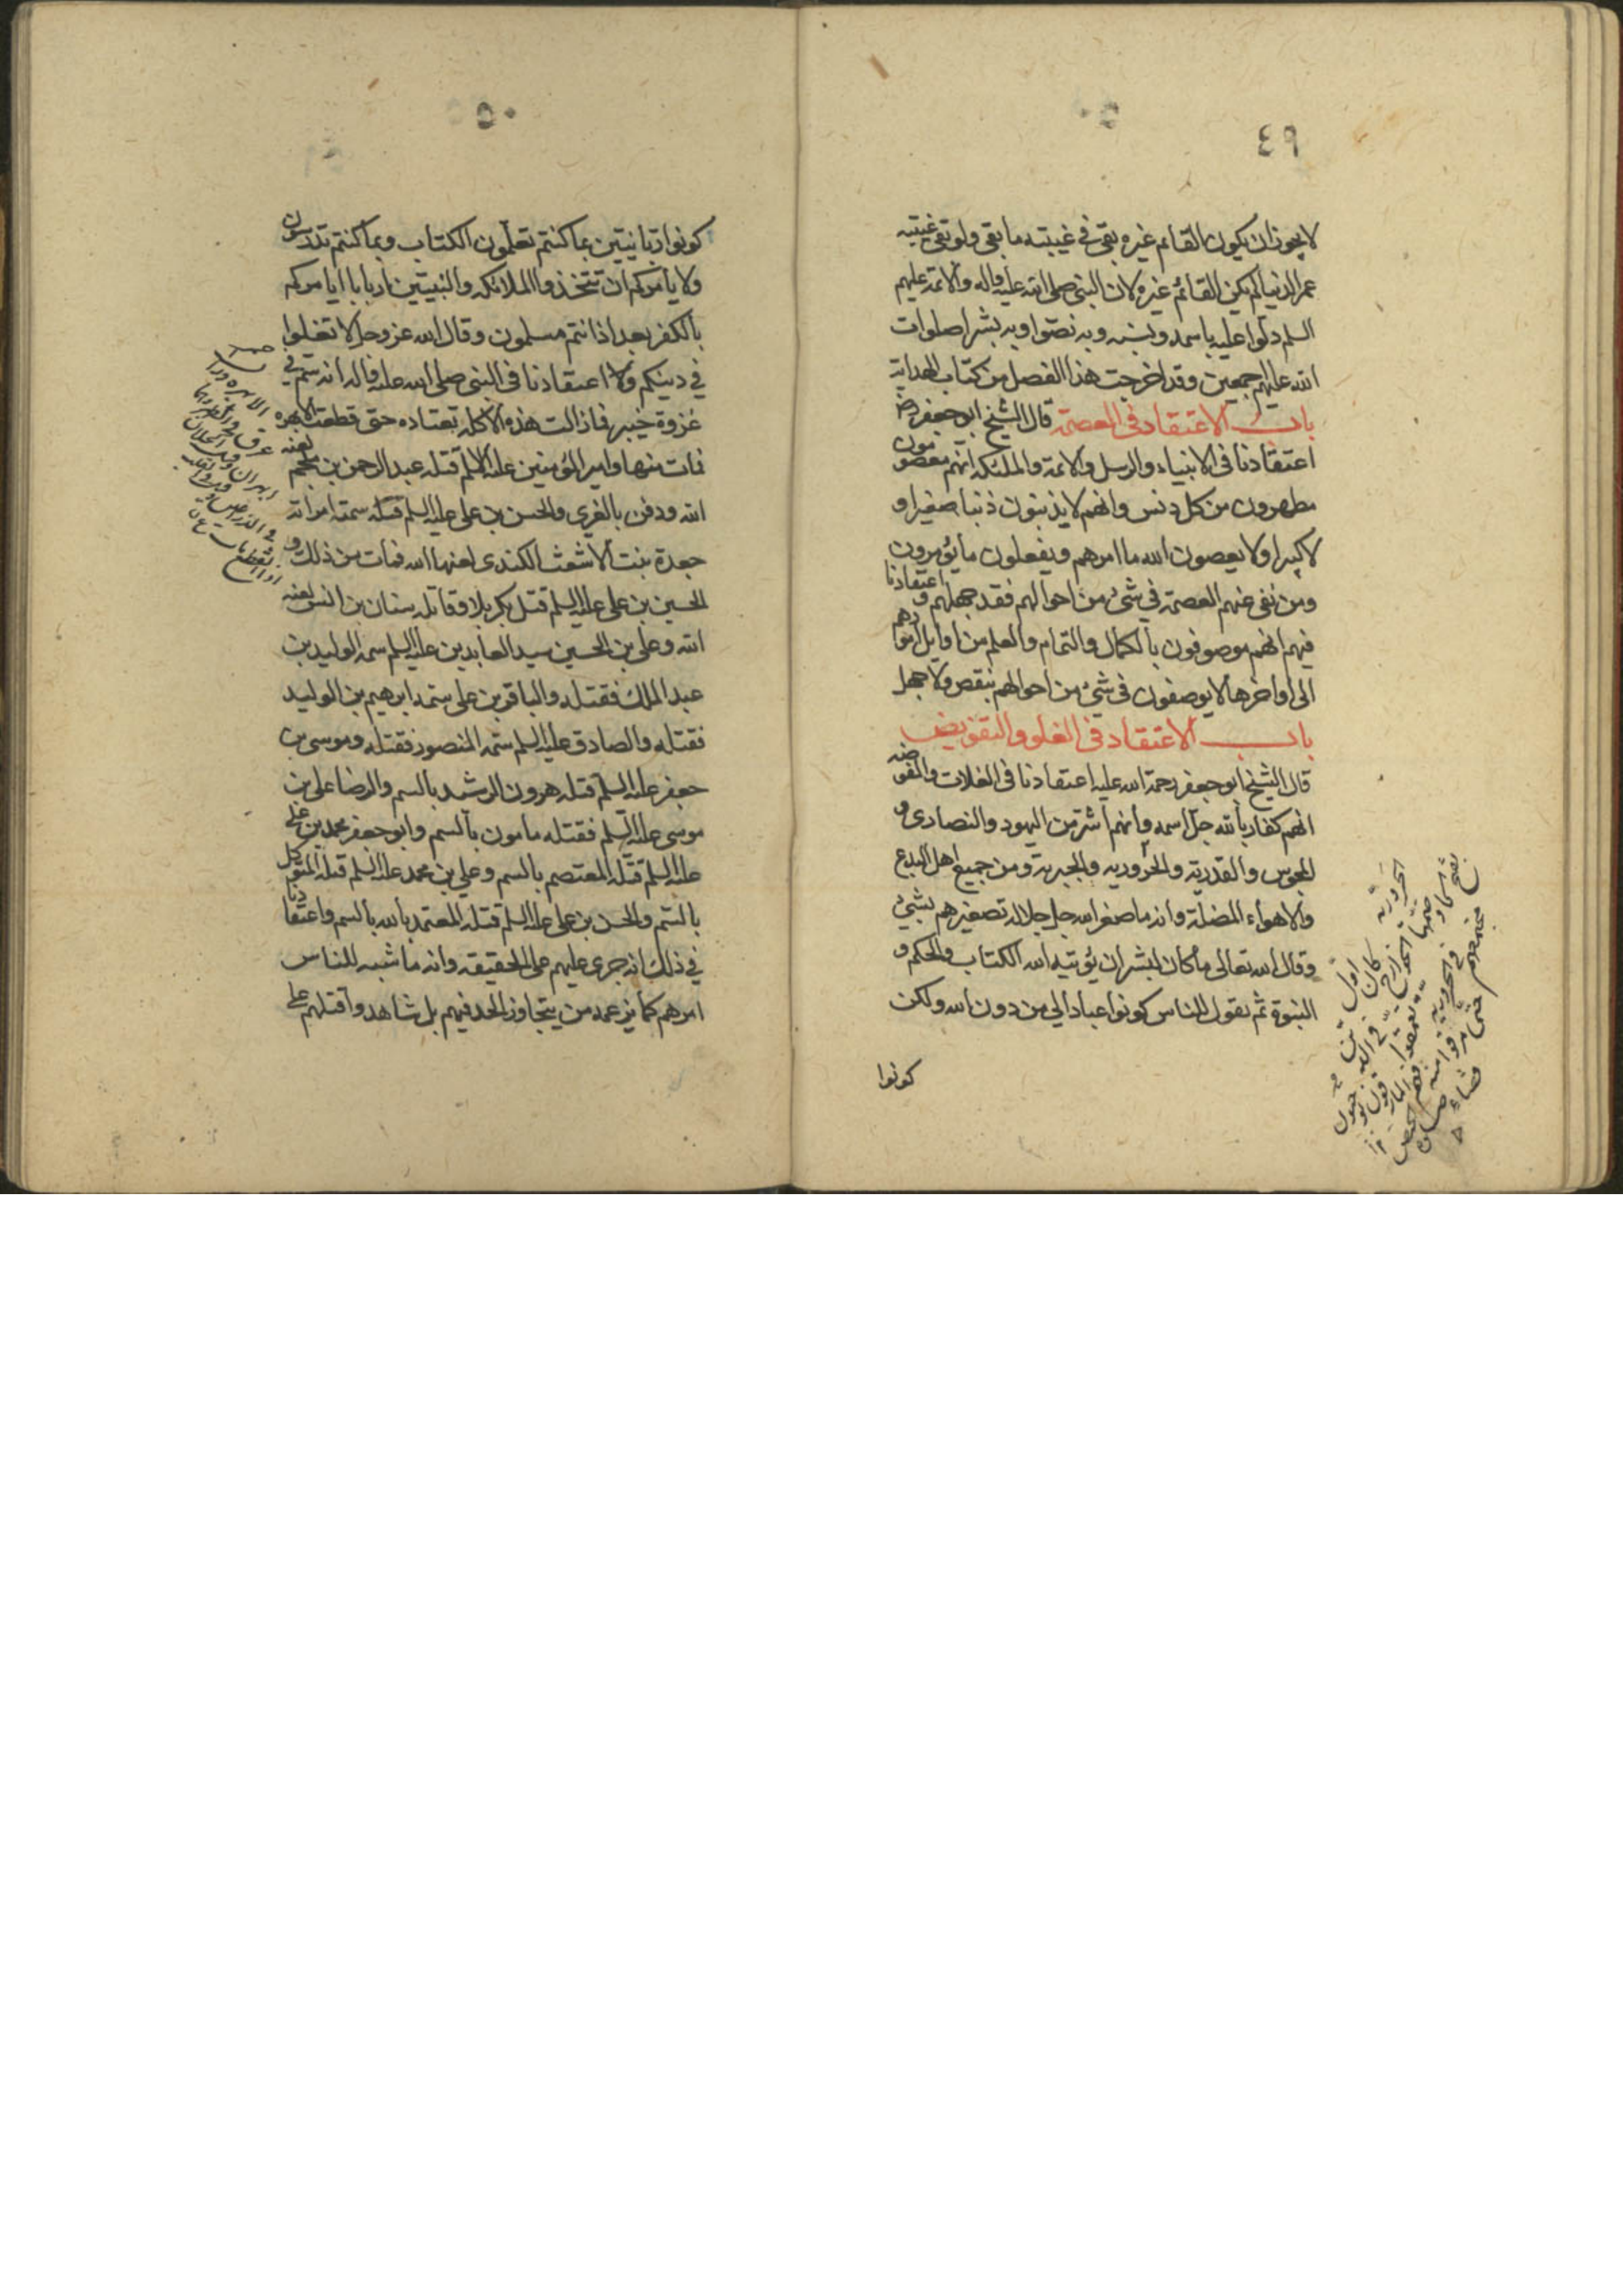 ٤٩
لا يجوز ان يكون القائم غيره بقى فى غيبته ما بقى ولو بقى غيبته
عمر الدنيا لم يكن القائم غيره لان النبى صلى الله عليه واله والائمة عليهم
السلم دلوا عليه باسمه ونسبه وبه نصوا وبه بشروا صلوات
الله عليهم اجمعين وقد اخرجت هذا الفصل من كتاب الهداية
باب الاعتقاد فى العصمة قال الشيخ ابو جعفر رض
اعتقادنا فى الانبياء والرسل والائمة والملئكه انهم معصومون
مطهرون من كل دنس وانهم لا يذنبون ذنبا صغيرا و
لا كبيرا ولا يعصون الله ما امرهم ويفعلون ما يؤمرون
ومن نفى عنهم العصمة فى شئ من احوالهم فقد جهلهم واعتقادنا
فيهم انهم موصوفون بالكمال والتمام والعلم من اوايل امورهم
الى اواخرها لا يوصفون فى شئ من احوالهم بنقص ولا جهل
باب الاعتقاد فى الغلو والتفويض
قال الشيخ ابو جعفر رحمة الله عليه اعتقادنا فى الغلات والمفوضه
انهم كفار بالله جل اسمه وانهم اشر من اليهود والنصارى و
المجوس والقدرية والحرورية والجبرية ومن جميع اهل البدع
والاهواء المضلة وانه ما صغر الله جل جلاله تصغيرهم بشئ
وقال الله تعالى ما كان لبشر ان يؤتيه الله الكتاب والحكم و
النبوة ثم يقول للناس كونوا عبادا لي من دون الله ولكن
كونوا
٥٠
كونوا ربانيين بما كنتم تعلمون الكتاب وبما كنتم تدرسون
ولا يأمركم ان تتخذوا الملائكه والنبيين اربابا ايامركم
بالكفر بعد اذ انتم مسلمون وقال الله عز وجل لا تغلوا
في دينكم واعتقادنا فى النبى صلى الله عليه واله انه سم في
غزوة خيبر فما زالت هذه الاكله تعتاده حتى قطعت ابهره
فمات منها وامير المؤمنين عليه السلم قتله عبد الرحمن بن ملجم لعنه
الله ودفن بالغرى والحسن بن على عليه السلم قتله سمته امراته
جعدة بنت الاشعث الكندى لعنها الله فمات من ذلك و
الحسين بن على عليه السلم قتل بكربلا وقاتله سنان بن انس لعنه
الله وعلى بن الحسين سيد العابدين عليه السلم سمه الوليد بن
عبد الملك فقتله والباقر بن على سمه ابرهيم بن الوليد
فقتله والصادق عليه السلم سمه المنصور فقتله وموسى بن
جعفر عليه السلم قتله هرون الرشيد بالسم والرضا على بن
موسى عليه السلم فقتله مامون بالسم وابو جعفر محمد بن على
عليه السلم قتله المعتصم بالسم وعلي بن محمد عليه السلم قتله المتوكل
بالسم والحسن بن على عليه السلم قتله المعتمد بالله بالسم واعتقادنا
في ذلك انه جرى عليهم على الحقيقه وانه ما شبه للناس
امرهم كما يزعمه من يتجاوز الحد فيهم بل شاهدوا قتلهم على